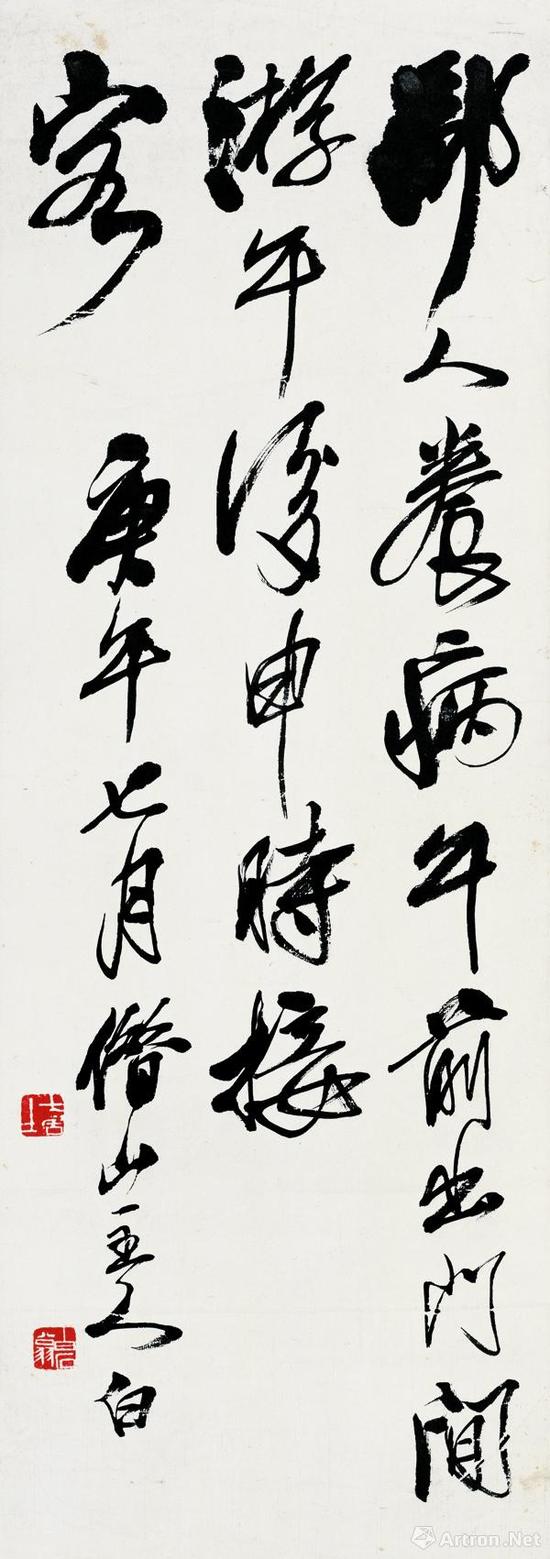 鄙人養病午前出门閒
游午後申時接
客
庚午七月借山主人白
Artron.Net